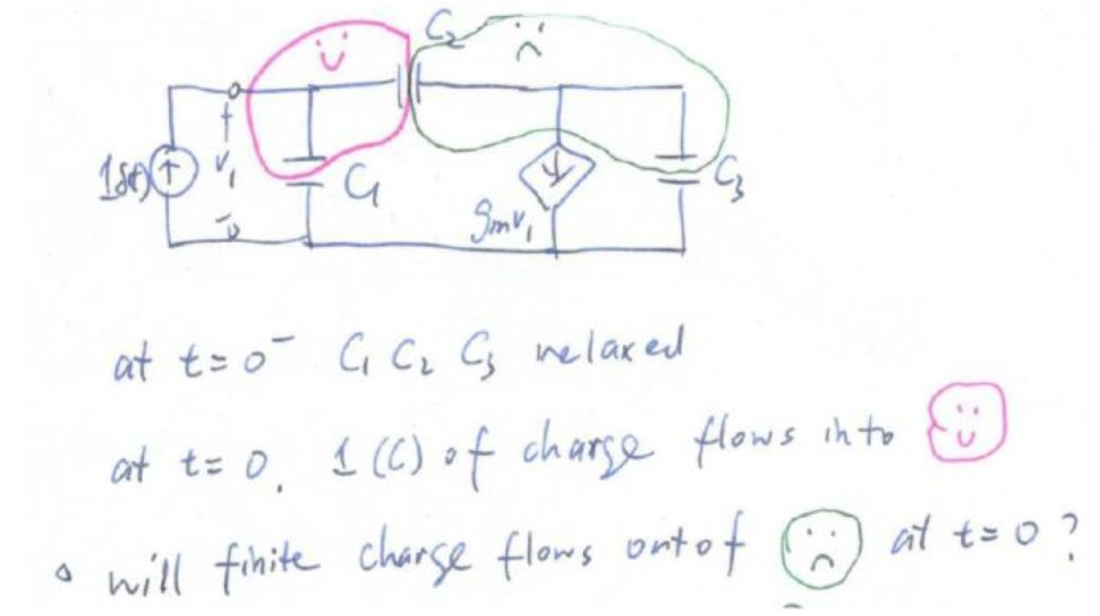 C₂
1δ(t)
+
V₁
-
C₁
gmv₁
C₃
at t=0⁻ C₁ C₂ C₃ relaxed
at t=0, 1(C) of charge flows into
◦ will finite charge flows ontof at t=0?